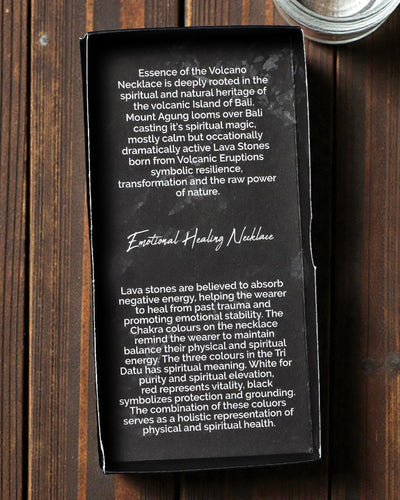 Essence of the Volcano
Necklace is deeply rooted in the
spiritual and natural heritage of
the volcanic Island of Bali.
Mount Agung looms over Bali
casting it's spiritual magic,
mostly calm but occationally
dramatically active Lava Stones
born from Volcanic Eruptions
symbolic resilience,
transformation and the raw power
of nature.
Emotional Healing Necklace
Lava stones are believed to absorb
negative energy, helping the wearer
to heal from past trauma and
promoting emotional stability. The
Chakra colours on the necklace
remind the wearer to maintain
balance their physical and spiritual
energy. The three colours in the Tri
Datu has spiritual meaning. White for
purity and spiritual elevation,
red represents vitality, black
symbolizes protection and grounding.
The combination of these coluors
serves as a holistic representation of
physical and spiritual health.